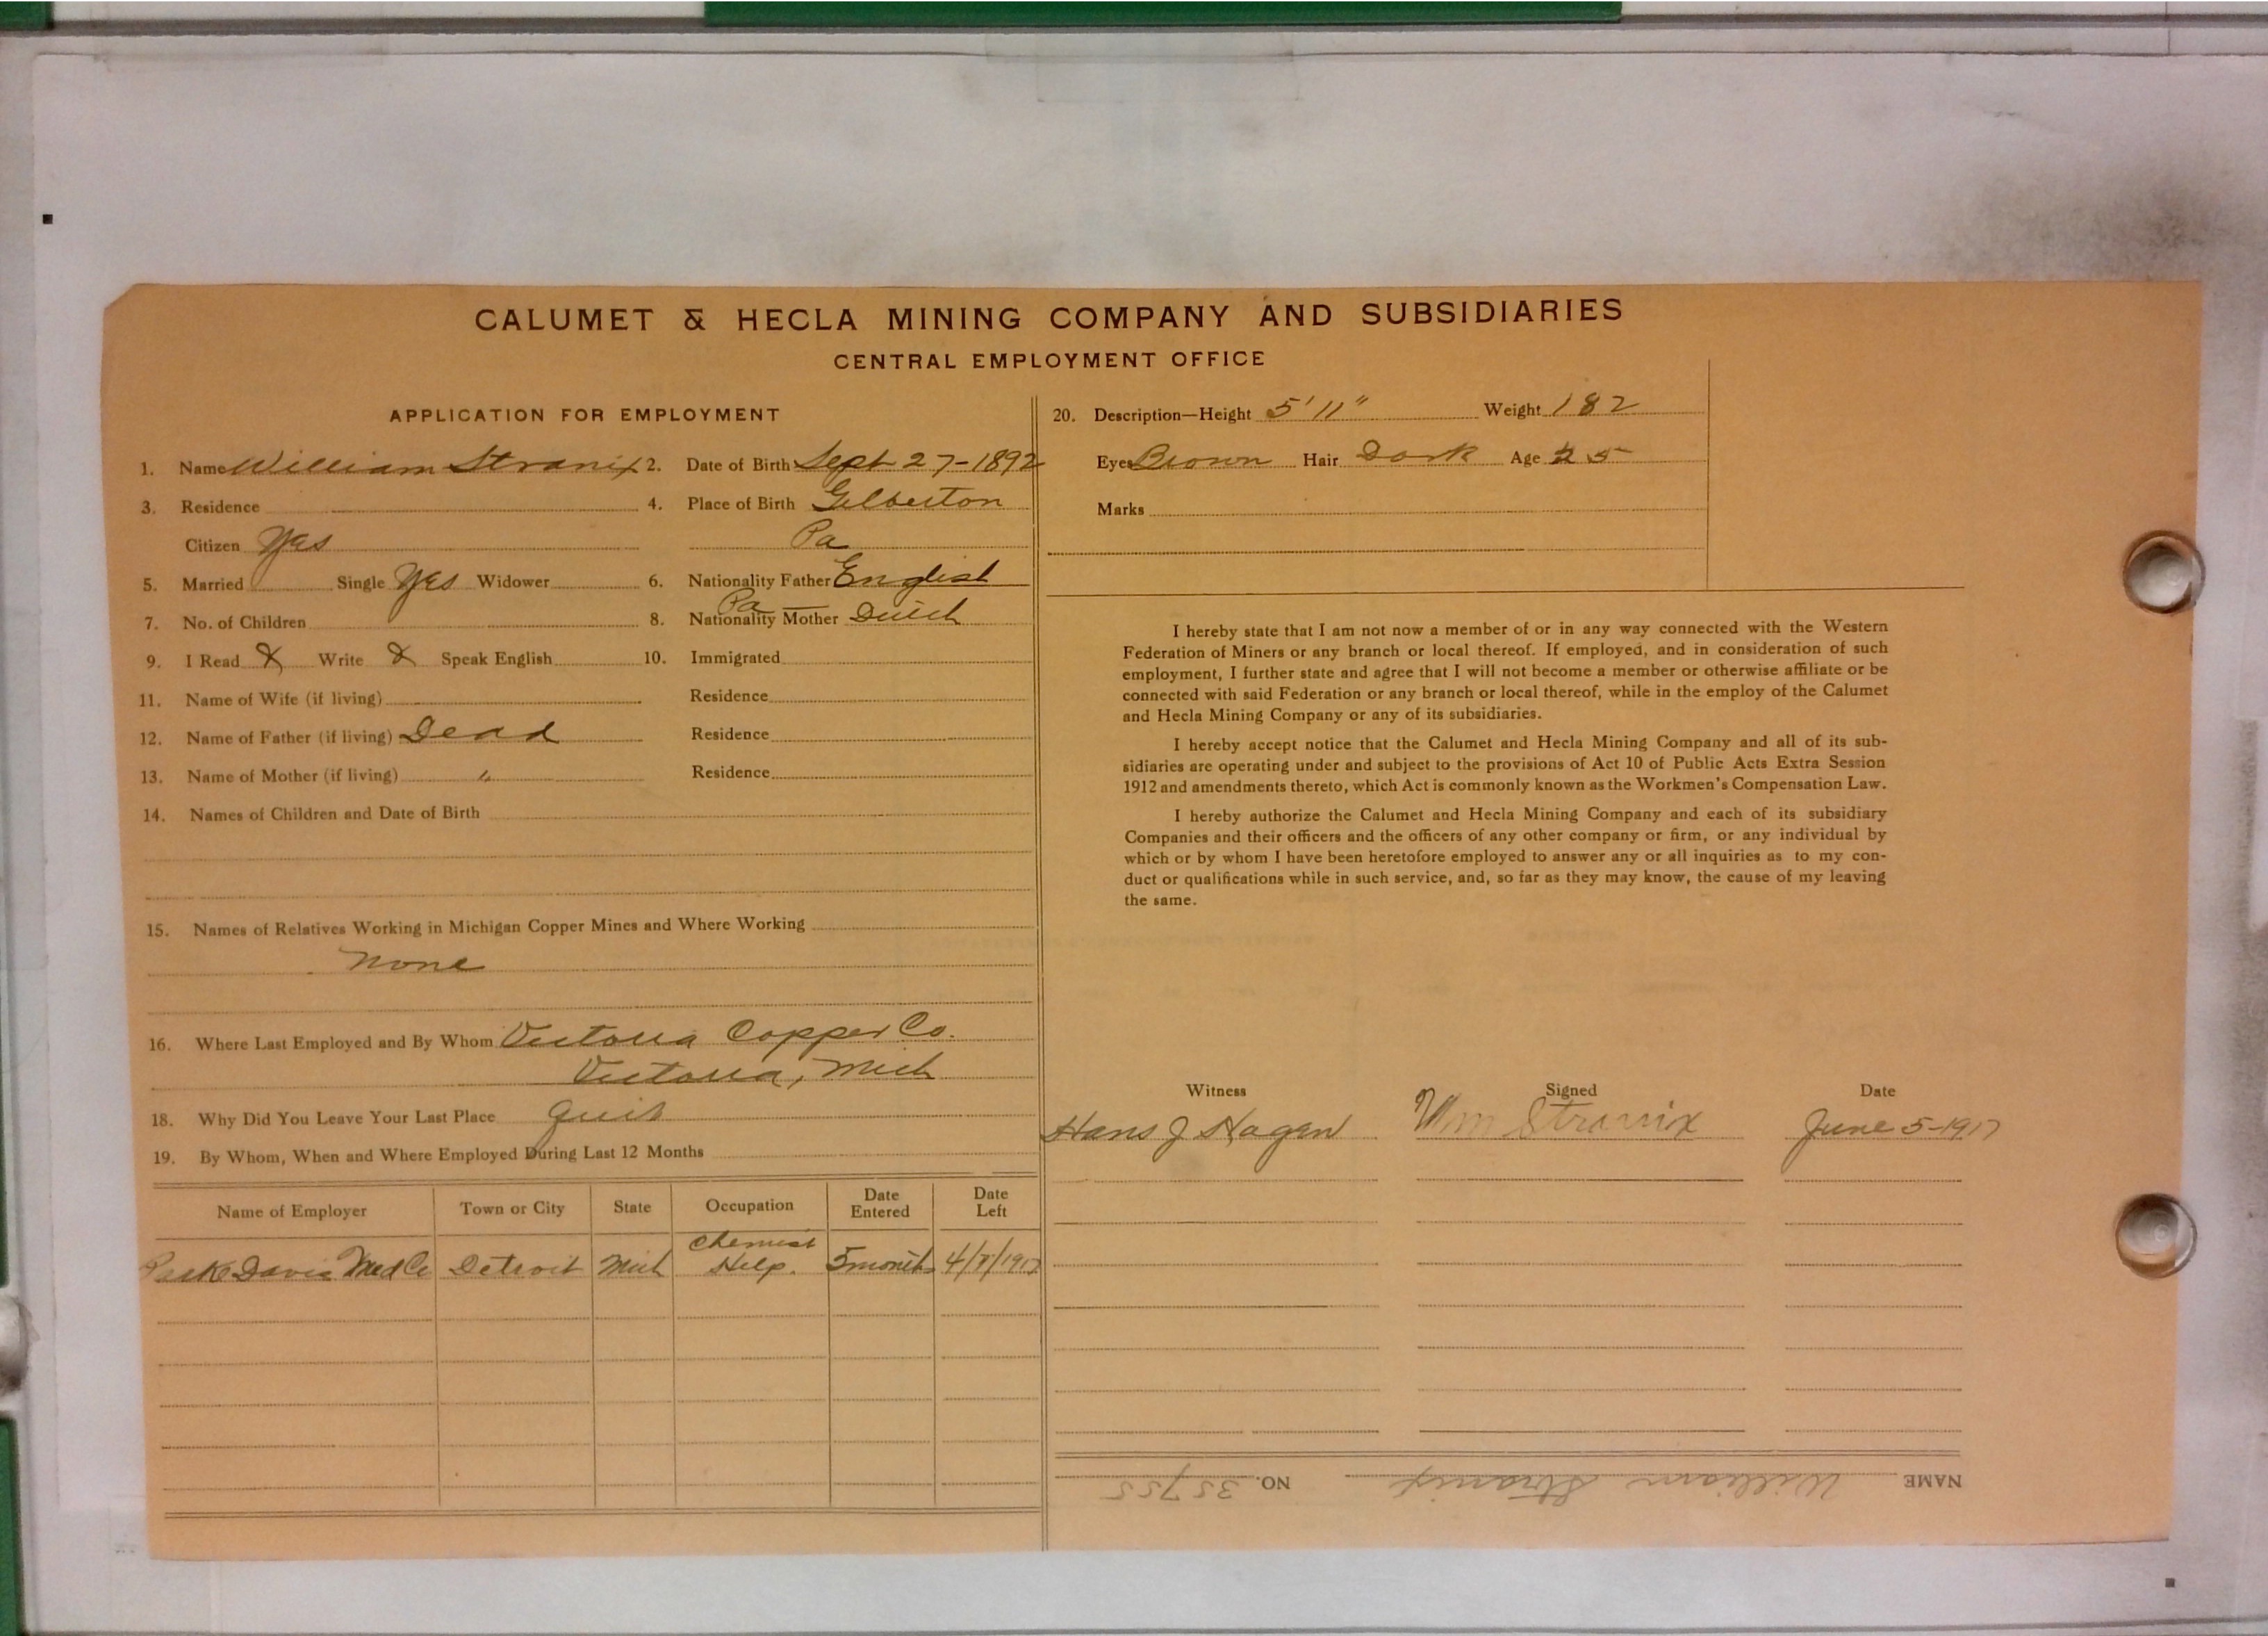 CALUMET & HECLA MINING COMPANY AND SUBSIDIARIES
CENTRAL EMPLOYMENT OFFICE
APPLICATION FOR EMPLOYMENT
1. Name William Stranix 2. Date of Birth Sept 27-1892
3. Residence 4. Place of Birth Gilberton
Citizen Yes Pa
5. Married Single Yes Widower 6. Nationality Father English
7. No. of Children 8. Nationality Mother Pa — Dutch
9. I Read X Write X Speak English 10. Immigrated
11. Name of Wife (if living) Residence
12. Name of Father (if living) Dead Residence
13. Name of Mother (if living) " Residence
14. Names of Children and Date of Birth
15. Names of Relatives Working in Michigan Copper Mines and Where Working
None
16. Where Last Employed and By Whom Victoria Copper Co.
Victoria, Mich
18. Why Did You Leave Your Last Place Quit
19. By Whom, When and Where Employed During Last 12 Months
Name of Employer Town or City State Occupation Date Entered Date Left
Parke Davis Med Co Detroit Mich Chemist Help. 5 months 4/8/1917
20. Description—Height 5' 11" Weight 182
Eyes Brown Hair Dark Age 25
Marks
I hereby state that I am not now a member of or in any way connected with the Western
Federation of Miners or any branch or local thereof. If employed, and in consideration of such
employment, I further state and agree that I will not become a member or otherwise affiliate or be
connected with said Federation or any branch or local thereof, while in the employ of the Calumet
and Hecla Mining Company or any of its subsidiaries.
I hereby accept notice that the Calumet and Hecla Mining Company and all of its sub-
sidiaries are operating under and subject to the provisions of Act 10 of Public Acts Extra Session
1912 and amendments thereto, which Act is commonly known as the Workmen's Compensation Law.
I hereby authorize the Calumet and Hecla Mining Company and each of its subsidiary
Companies and their officers and the officers of any other company or firm, or any individual by
which or by whom I have been heretofore employed to answer any or all inquiries as to my con-
duct or qualifications while in such service, and, so far as they may know, the cause of my leaving
the same.
Witness Signed Date
Hans J Hagen Wm Stranix June 5-1917
NAME William Stranix NO. 35755